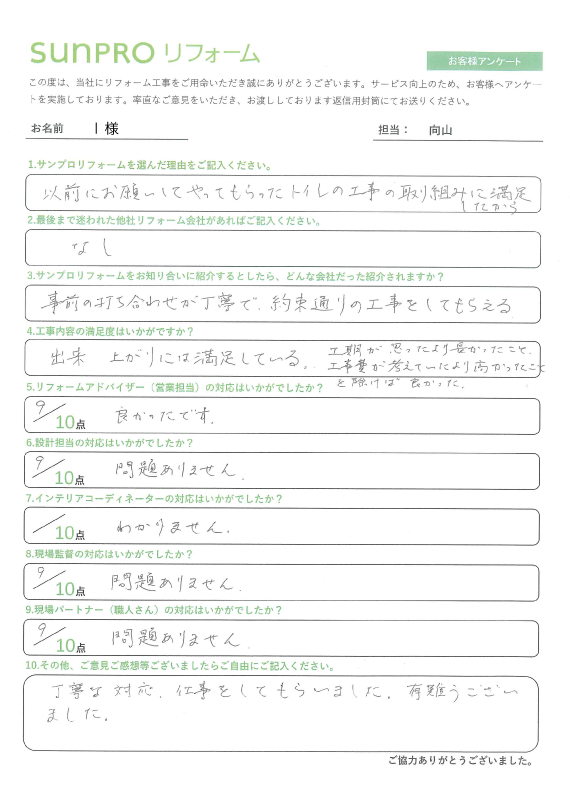 SUNPRO リフォーム
お客様アンケート
この度は、当社にリフォーム工事をご用命いただき誠にありがとうございます。サービス向上のため、お客様へアンケー
トを実施しております。率直なご意見をいただき、お渡ししております返信用封筒にてお送りください。
お名前 I 様 担当： 向山
1.サンプロリフォームを選んだ理由をご記入ください。
以前にお願いしてやってもらったトイレの工事の取り組みに満足
したから
2.最後まで迷われた他社リフォーム会社があればご記入ください。
なし
3.サンプロリフォームをお知り合いに紹介するとしたら、どんな会社だった紹介されますか？
事前の打ち合わせが丁寧で、約束通りの工事をしてもらえる
4.工事内容の満足度はいかがですか？
出来 上がりには満足している。
工期が 思ったより長かったこと、
工事費が考えていたより高かったこと
を除けば 良かった。
5.リフォームアドバイザー（営業担当）の対応はいかがでしたか？
9/10点 良かったです。
6.設計担当の対応はいかがでしたか？
9/10点 問題ありません。
7.インテリアコーディネーターの対応はいかがでしたか？
/10点 わかりません。
8.現場監督の対応はいかがでしたか？
9/10点 問題ありません。
9.現場パートナー（職人さん）の対応はいかがでしたか？
9/10点 問題ありません。
10.その他、ご意見ご感想等ございましたらご自由にご記入ください。
丁寧な対応、仕事をしてもらいました。有難うござい
ました。
ご協力ありがとうございました。